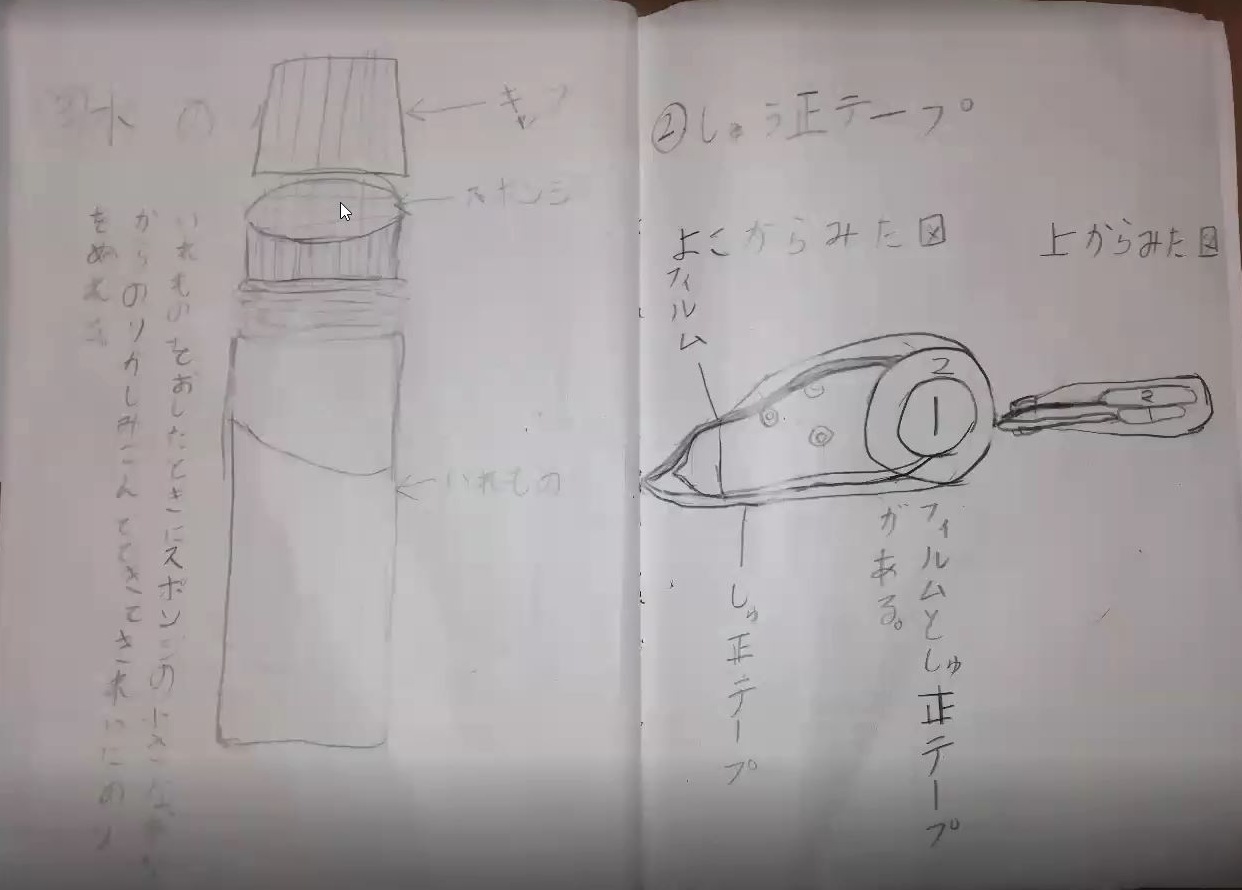 水の
キャップ
スポンジ
いれもの
いれものをおしたときにスポンジの小さな
からのりがしみこんででてきてきれいにのり
をぬれる
②しゅう正テープ
よこからみた図
上からみた図
フィルム
2
1
2
1
しゅ正テープ
フィルムとしゅ正テープ
がある。